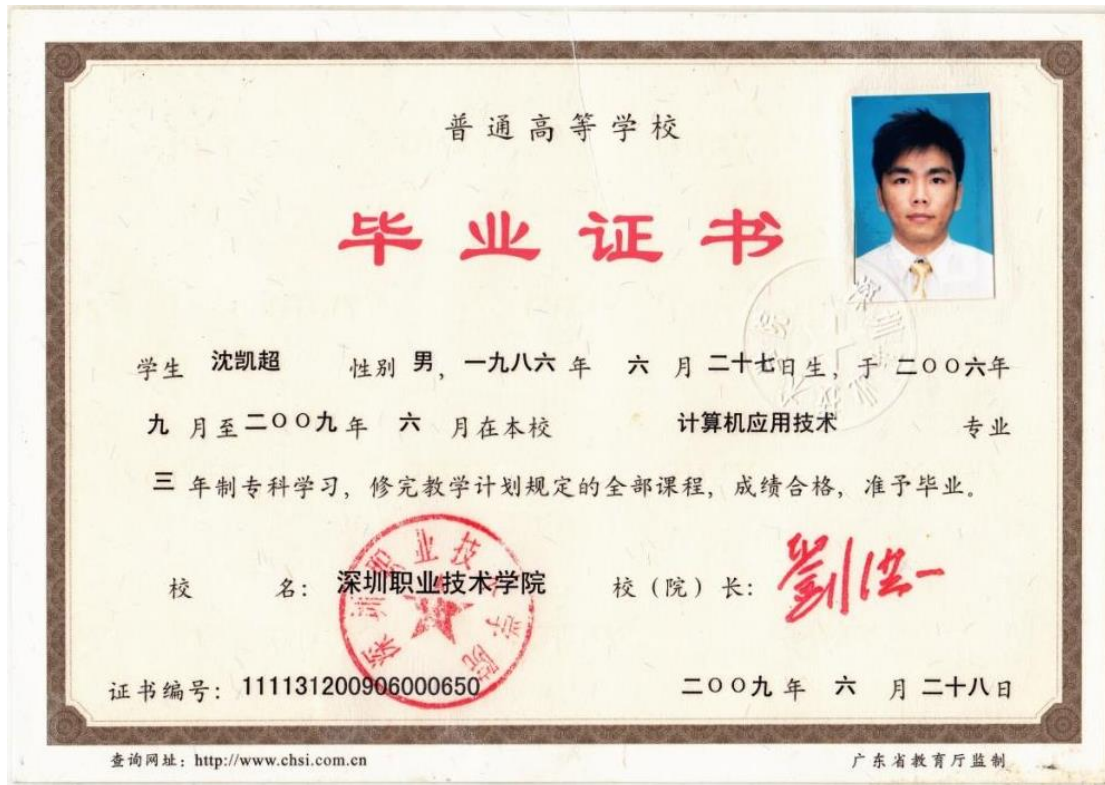 普通高等学校
毕业证书
学生 沈凯超 性别 男, 一九八六 年 六 月 二十七日生, 于 二〇〇六年
九 月至 二〇〇九 年 六 月在本校 计算机应用技术 专业
三 年制专科学习, 修完教学计划规定的全部课程, 成绩合格, 准予毕业。
校 名: 深圳职业技术学院 校(院)长: 劉洪一
深圳职业技术学院
证书编号: 111131200906000650 二〇〇九 年 六 月 二十八日
查询网址: http://www.chsi.com.cn 广东省教育厅监制